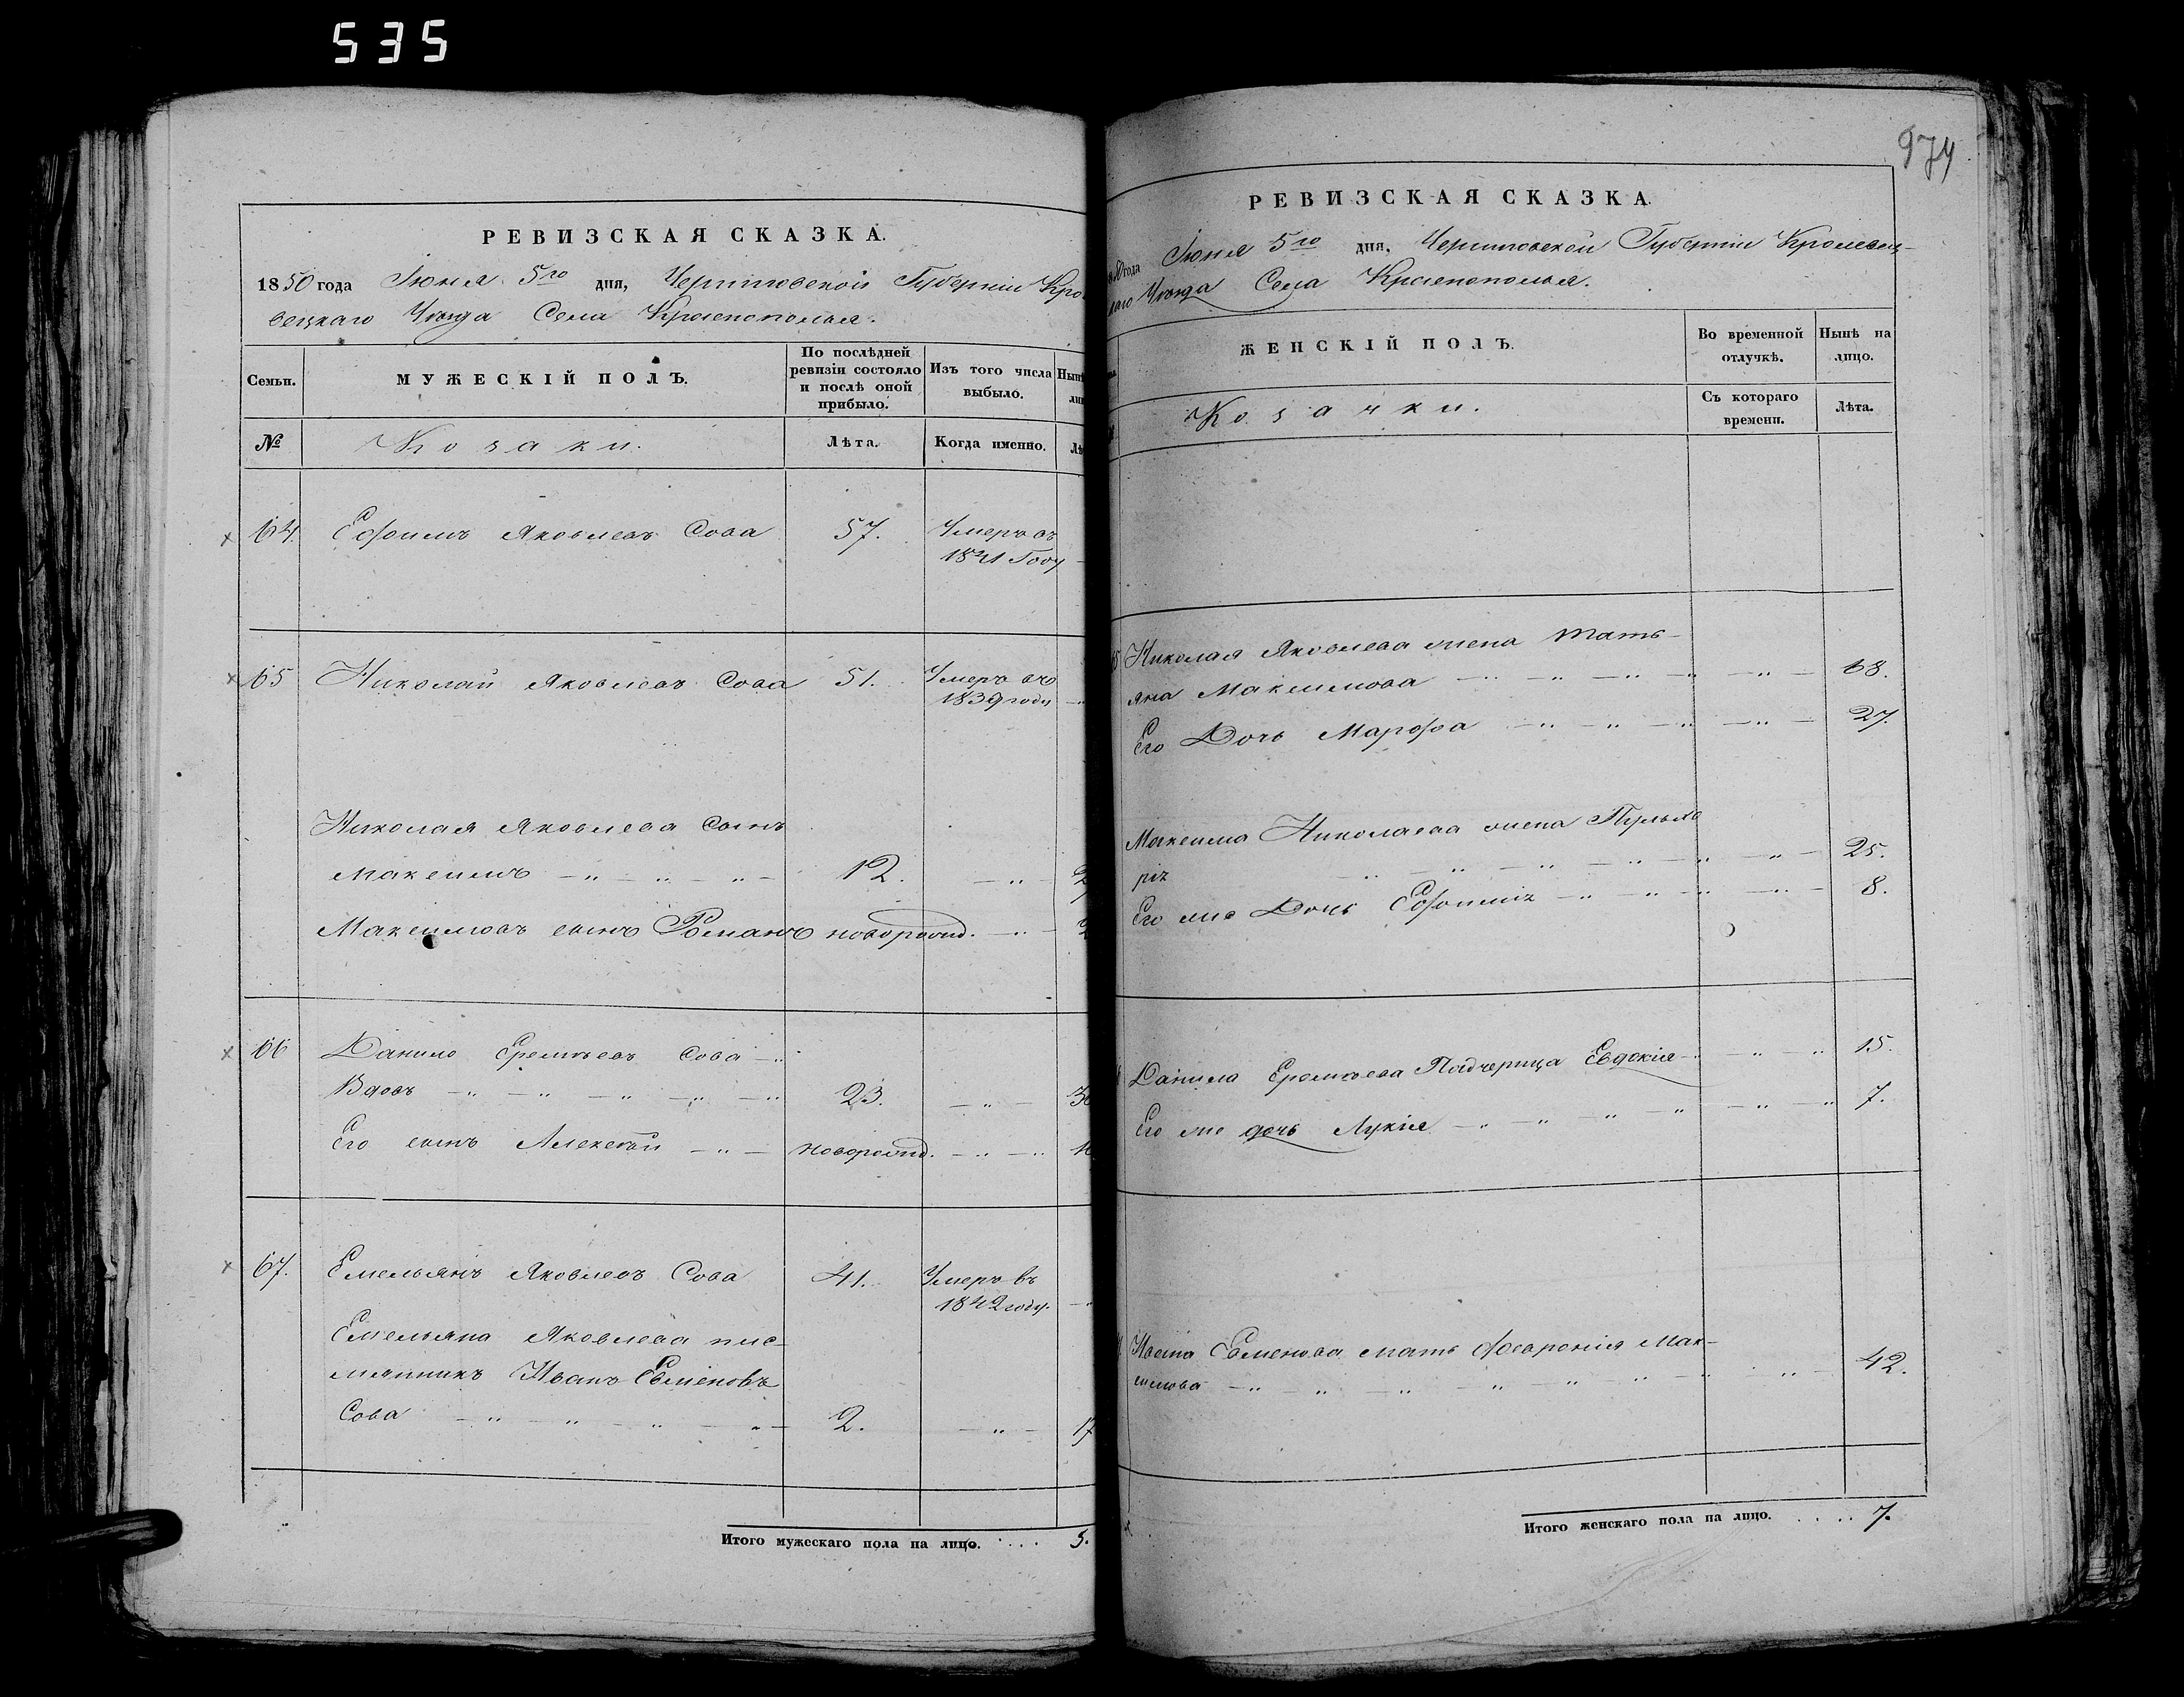 535
РЕВИЗСКАЯ СКАЗКА.
1850 года Іюня 5го дня, Черниговской Губерніи Кро
вецкаго Уѣзда Села Краснополья.
Семьи.
МУЖЕСКІЙ ПОЛЪ.
По послѣдней
ревизіи состояло
и послѣ оной
прибыло.
Изъ того числа
выбыло.
Нынѣ
ли
№
Козаки.
Лѣта.
Когда именно.
Лѣ
64. Ефимъ Яковлевъ Сова 57. Умеръ въ
1841 Году
65 Николай Яковлевъ Сова 51. Умеръ въ
1839 году
Николая Яковлева Сынъ
Максимъ 12. 2
Максимовъ сынъ Романъ новорожд. 2
66 Данило Еремѣевъ Сова
Вдовъ 23. 3
Его сынъ Алексѣй новорожд.
67. Емельянъ Яковлевъ Сова 41. Умеръ въ
1842 году.
Емельяна Яковлева пле-
мянникъ Иванъ Евменовъ
Сова 2. 17
Итого мужескаго пола на лицо. . . . 5.
974
РЕВИЗСКАЯ СКАЗКА.
50 года Іюня 5го дня, Черниговской Губерніи Кролевец-
каго Уѣзда Села Краснополья.
ЖЕНСКІЙ ПОЛЪ.
Во временной
отлучкѣ.
Нынѣ на
лицо.
Козачки.
Съ котораго
времени.
Лѣта.
5 Николая Яковлева жена Тать-
яна Максимова 68.
Его Дочь Марфа 27.
Максима Николаева жена Пульхе
рія 25.
Его же Дочь Ефимія 8.
Данила Еремѣева Падчерица Евдокія 15.
Его же дочь Лукія 7.
Ивана Евменова мать Февронія Мак-
симова 42.
Итого женскаго пола на лицо. . . . . 7.